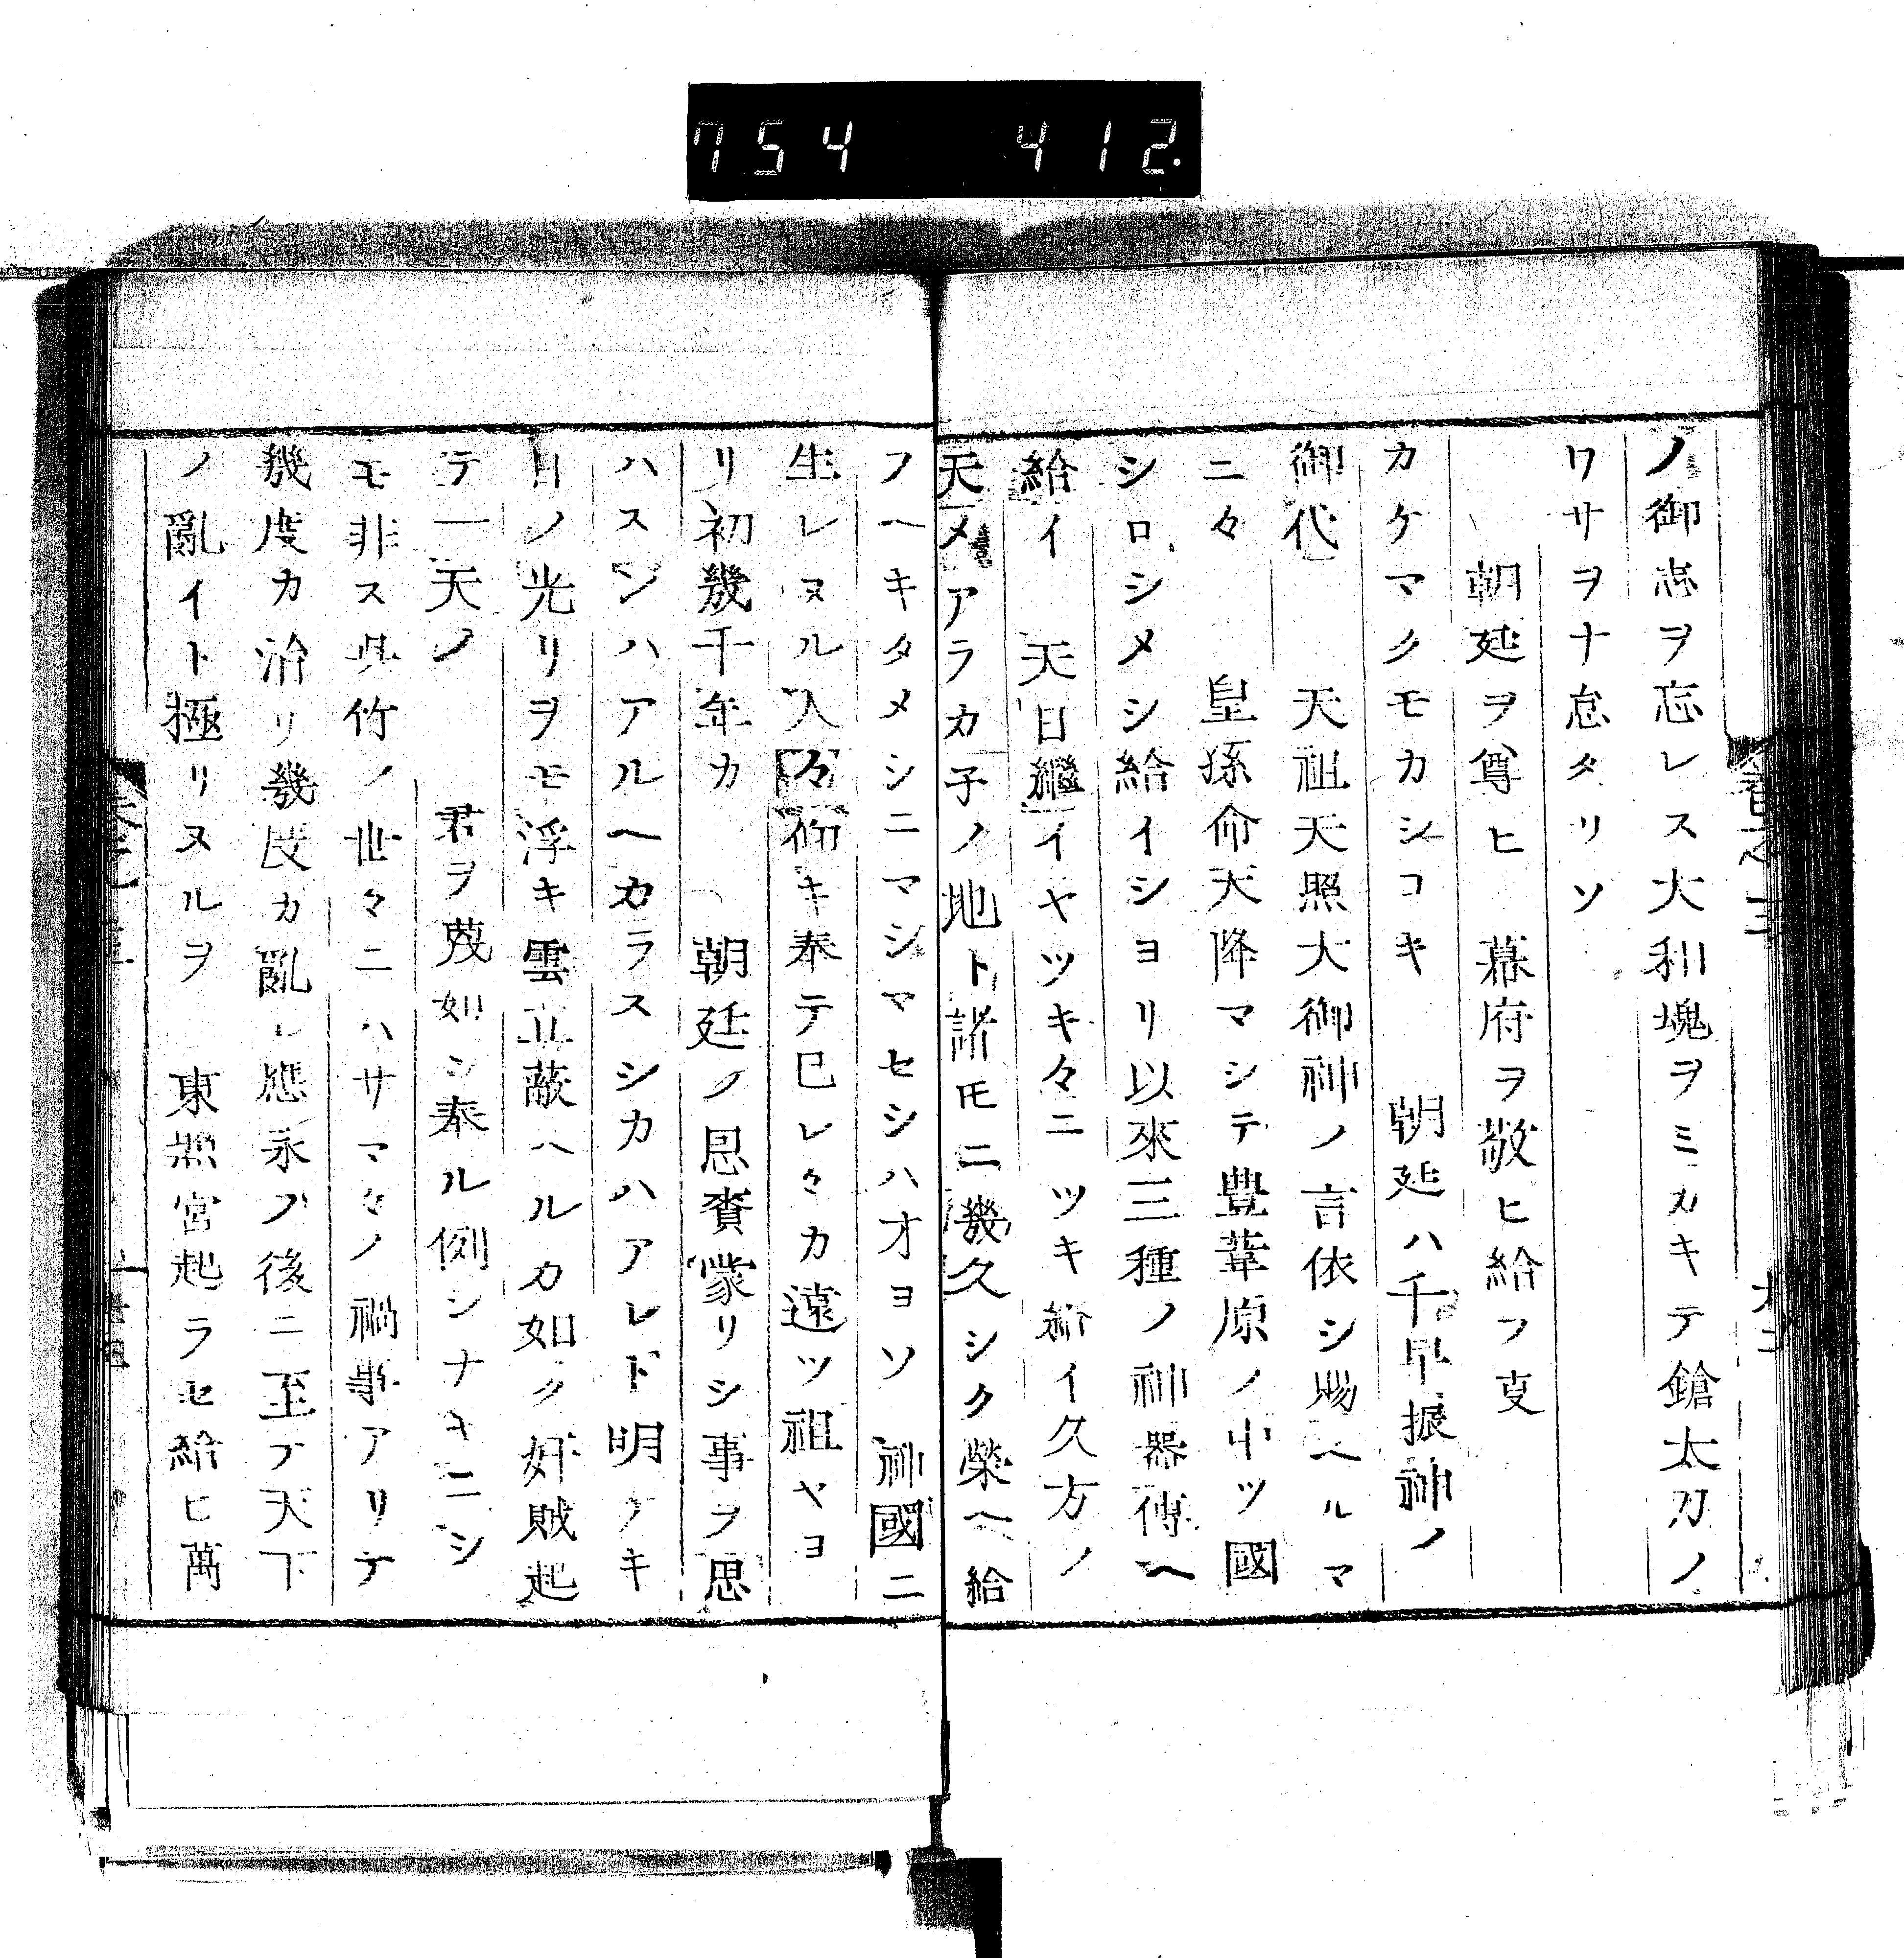 754 412
ノ御志ヲ忘レス大和塊ヲミカキテ鎗太刀ノ
ワサヲナ怠タリソ
朝廷ヲ尊ヒ 幕府ヲ敬ヒ給フ叓
カケマクモカシコキ 朝廷ハ千早振神ノ
御代 天祖天照大御神ノ言依シ賜ヘルマ
ニ々 皇孫命天降マシテ豊葦原ノ中ツ國
シロシメシ給イシヨリ以來三種ノ神器傳ヘ
給イ 天日繼イヤツキ々ニツキ給イ久方ノ
天メアラカ子ノ地ト諸モニ幾久シク榮ヘ給
フヘキタメシニマシマセシハオヨソ 神國ニ
生レヌル人々仰キ奉テ巳レ々カ遠ツ祖ヤヨ
リ初幾千年カ 朝廷ノ恩賚蒙リシ事ヲ思
ハスンハアルヘカラスシカハアレド明ケキ
日ノ光リヲモ浮キ雲立蔽ハルカ如ク奸賊起
テ一天ノ 君ヲ蔑如シ奉ル例シナキニシ
モ非ス呉竹ノ世々ニハサマ々ノ禍事アリテ
幾度カ治リ幾度カ亂レ應永ノ後ニ至テ天下
ノ亂イト極リヌルヲ 東照宮起ラセ給ヒ萬